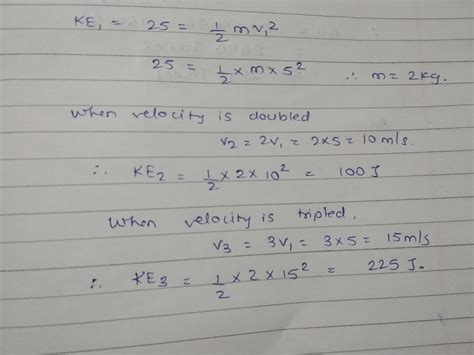 KE₁ = 25 = 1/2 m v₁²
25 = 1/2 × m × 5² ∴ m = 2kg.
When velocity is doubled
v₂ = 2v₁ = 2×5 = 10 m/s.
∴ KE₂ = 1/2 × 2 × 10² = 100 J
When velocity is tripled.
v₃ = 3v₁ = 3×5 = 15m/s
∴ KE₃ = 1/2 × 2 × 15² = 225 J.